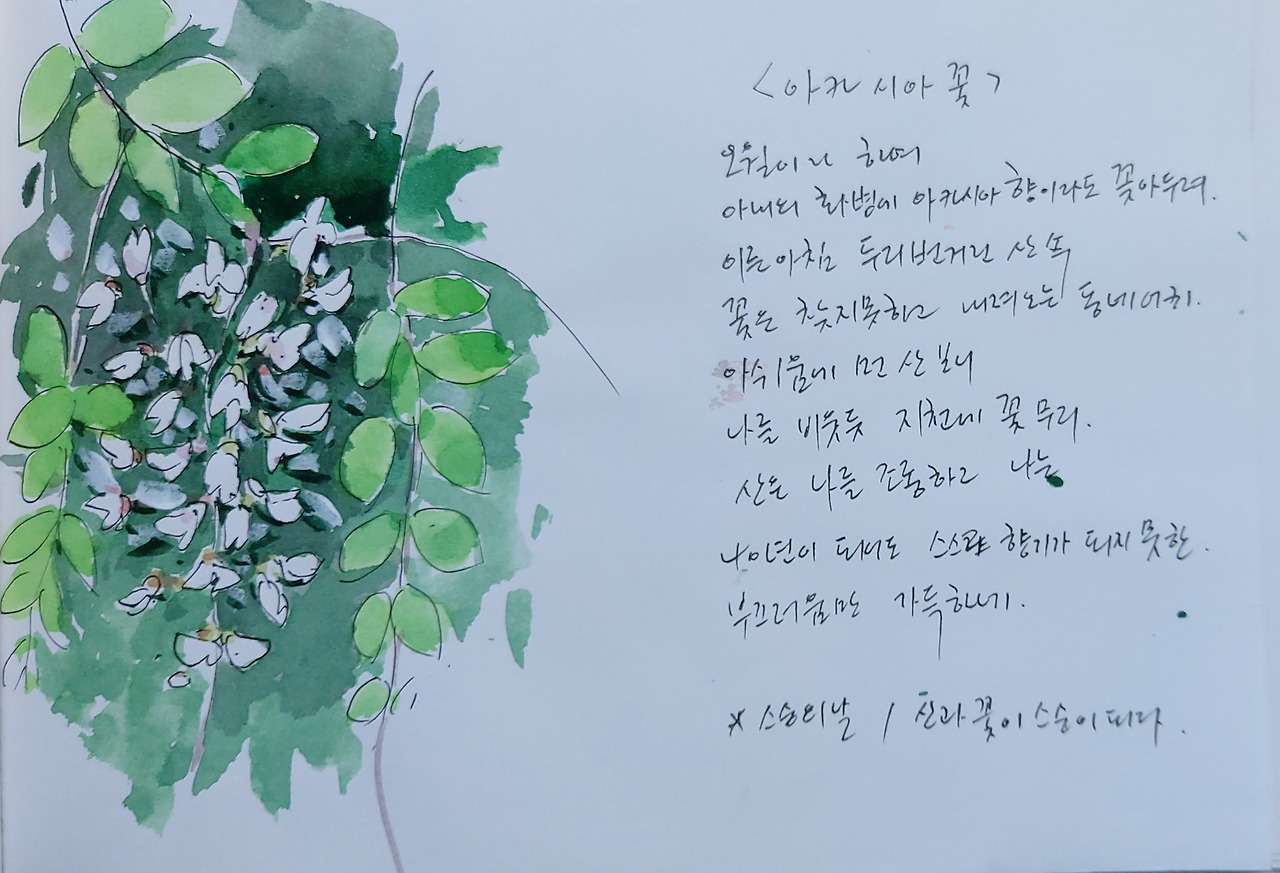 <아카시아 꽃>
오월이라 하여
아내의 화병에 아카시아 향이라도 꽂아두려.
이른 아침 두리번거린 산 속
꽃은 찾지 못하고 내려오는 동네 어귀.
아쉬움에 먼 산 보니
나를 비웃듯 지천에 꽃 무리.
산은 나를 조롱하고 나는
나이 던이 되어도 스스로 향기가 되지 못한.
부끄러움만 가득하네.
* 스승의 날 / 산과 꽃이 스승이 되다.